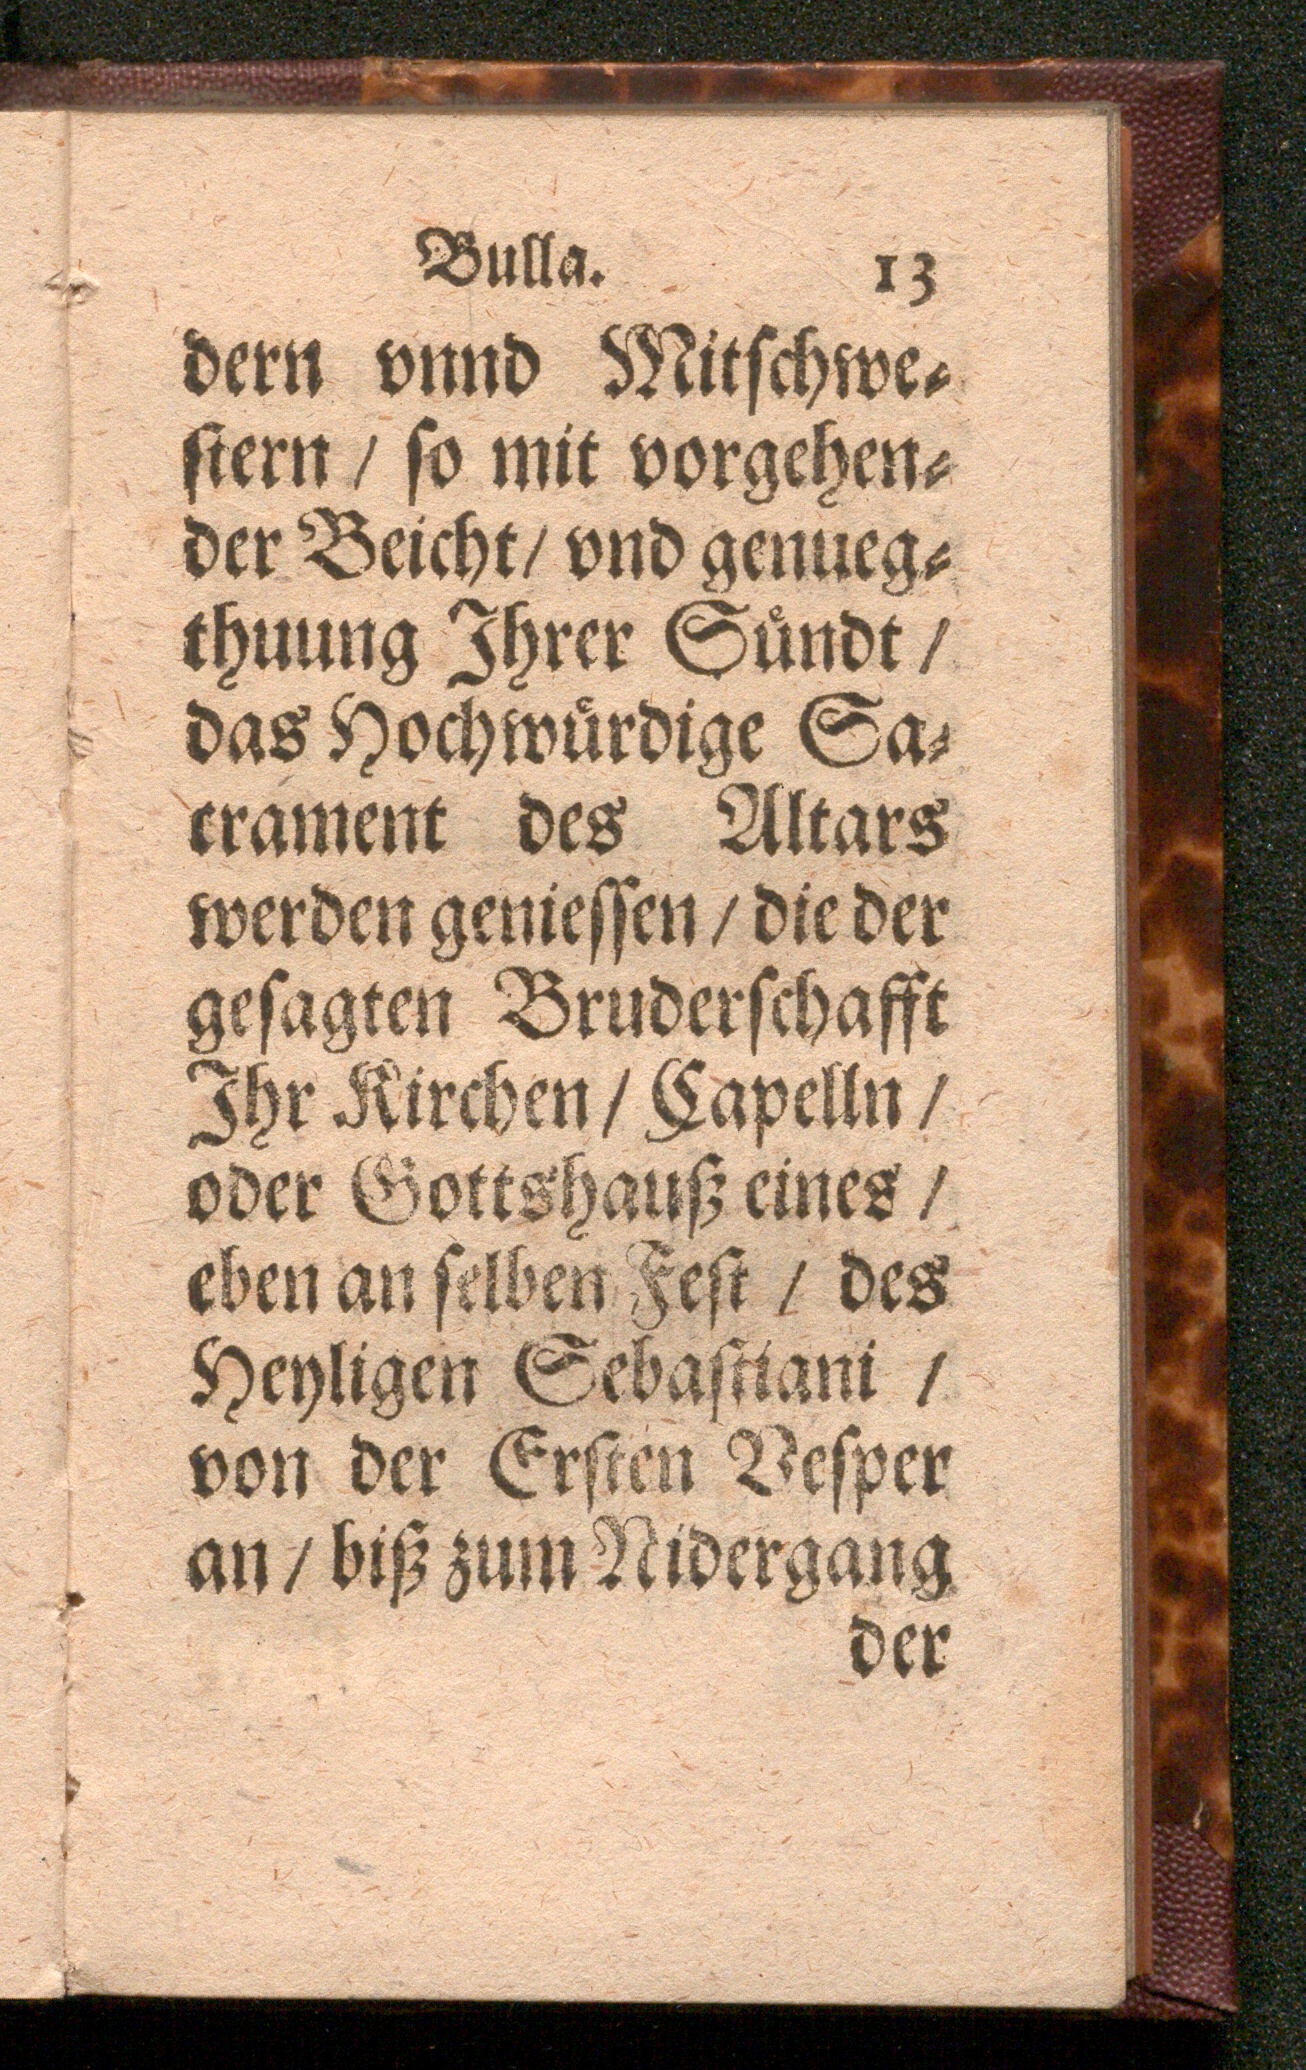 Bulla. 13
dern vnnd Mitſchwe⸗
ſtern / ſo mit vorgehen⸗
der Beicht / vnd genueg⸗
thuung Ihrer Suͤndt /
das Hochwuͤrdige Sa⸗
crament des Altars
werden genieſſen / die der
geſagten Bruderſchafft
Ihr Kirchen / Capelln /
oder Gottshauß eines /
eben an ſelben Feſt / des
Heyligen Sebaſtiani /
von der Erſten Veſper
an / biß zum Nidergang
der